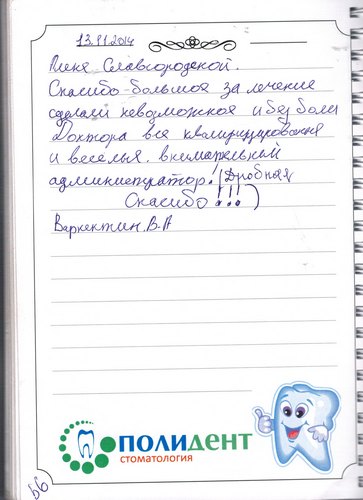 13.11.2014
Лиля Славгородской.
Спасибо большое за лечение
сделали невозможное и без боли
Доктора все квалифицирования
и веселья. внимательный
администратор! (Дробная
Спасибо!!!)
Варкентин.В.А
ПОЛИДЕНТ
СТОМАТОЛОГИЯ
56